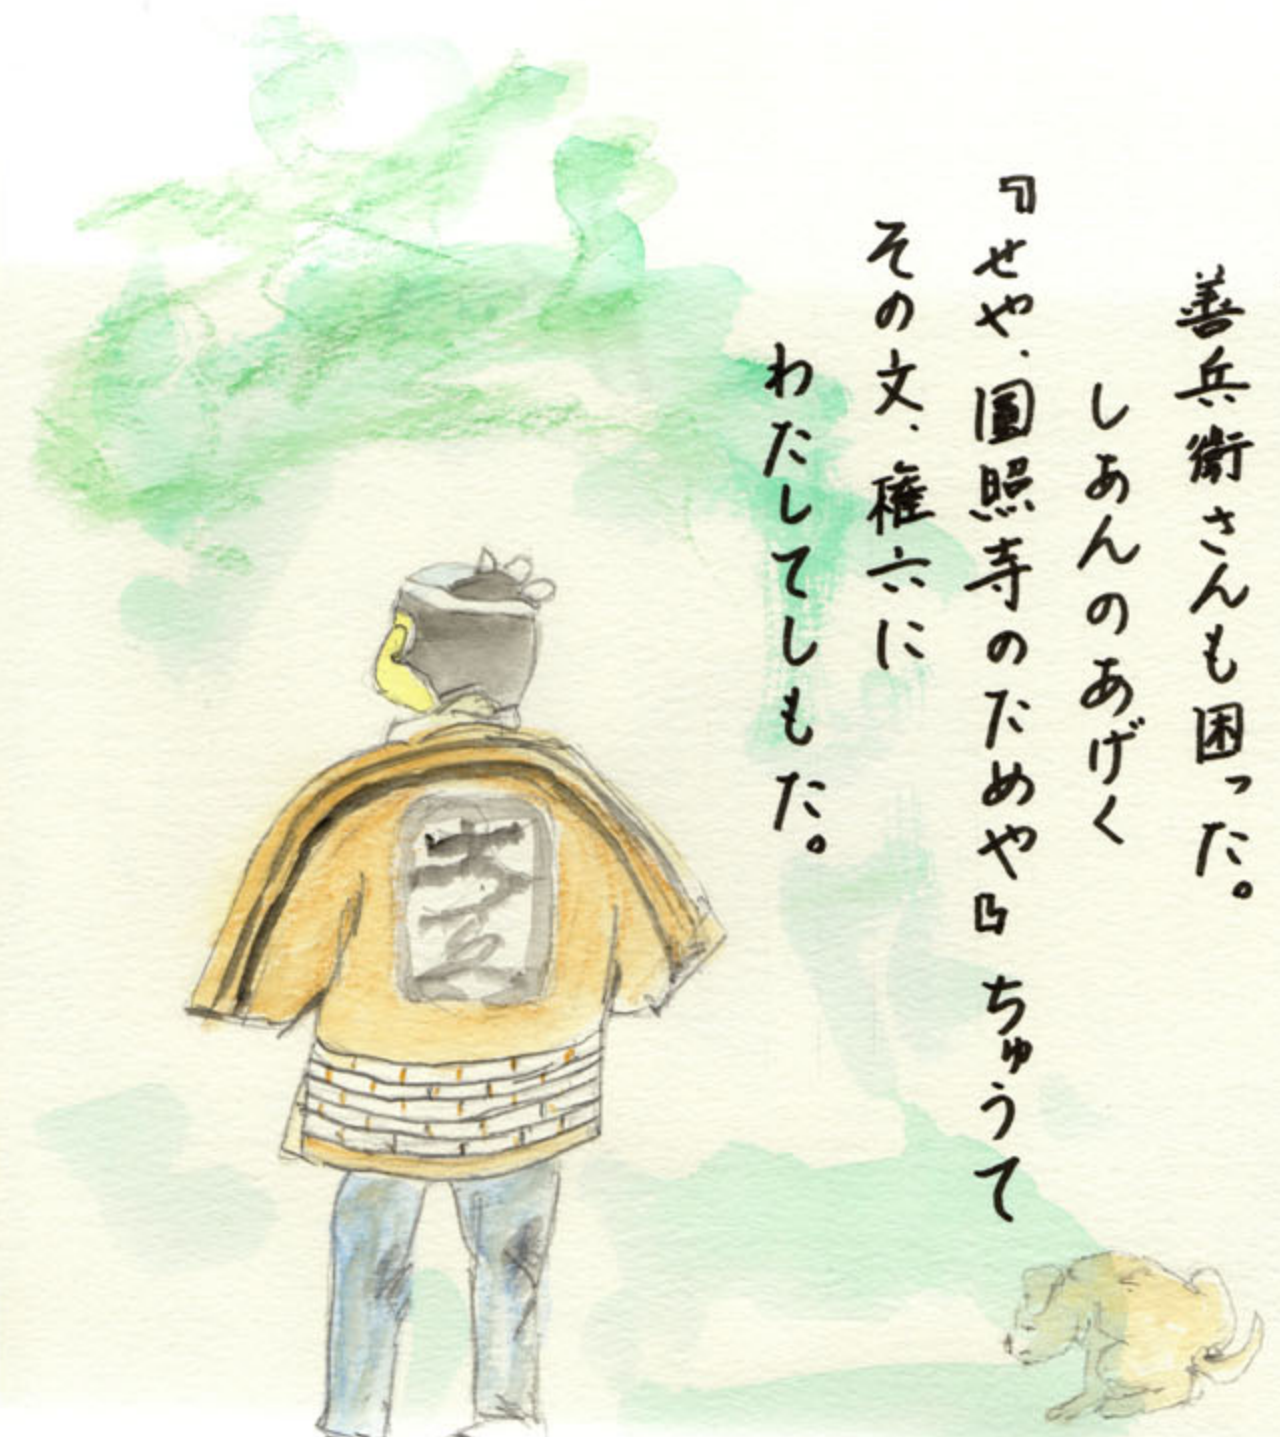 善兵衛さんも困った。
しあんのあげく
『せや、圓照寺のためや』ちゅうて
その文、権六に
わたしてしもた。